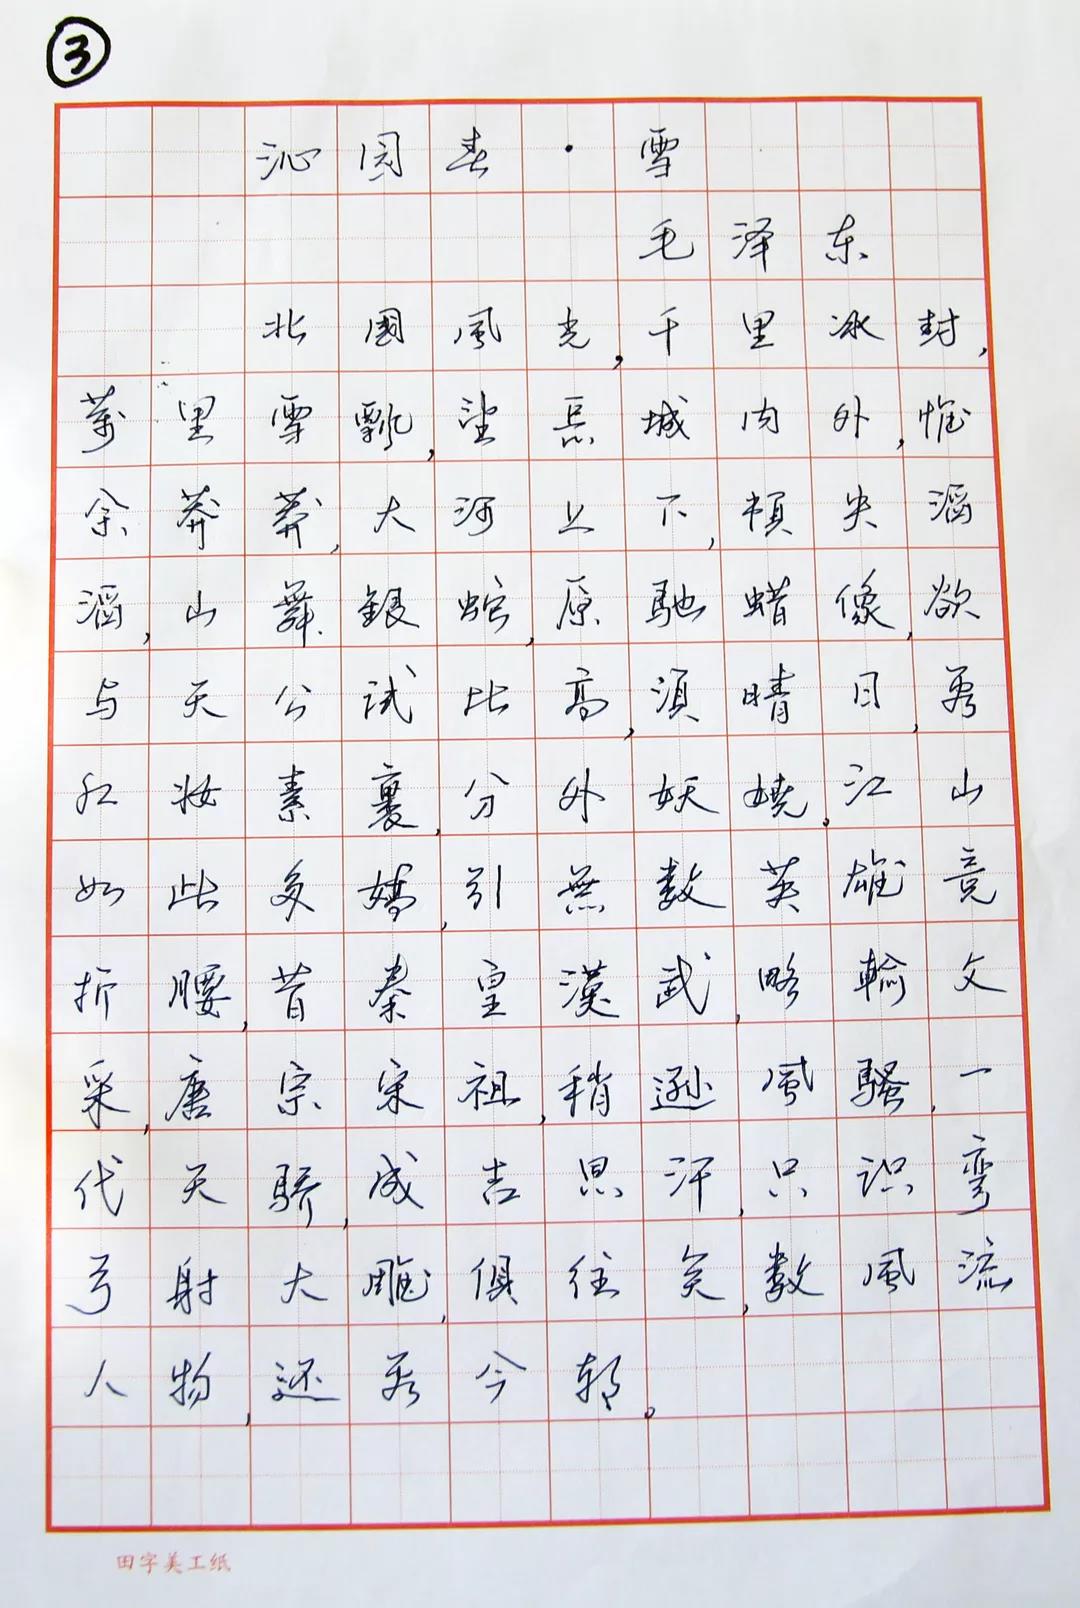 ③
沁园春·雪
毛泽东
北國風光,千里冰封,
萬里雪飄,望長城内外,惟
余莽莽,大河上下,頓失滔
滔,山舞銀蛇,原馳蜡像,欲
与天公試比高,須晴日,看
红妆素裹,分外妖娆。江山
如此多嬌,引無數英雄竞
折腰,昔秦皇漢武,略輸文
采,唐宗宋祖,稍遜風騷,一
代天骄,成吉思汗,只识弯
弓射大雕,俱往矣,數風流
人物,还看今朝。
田字美工纸